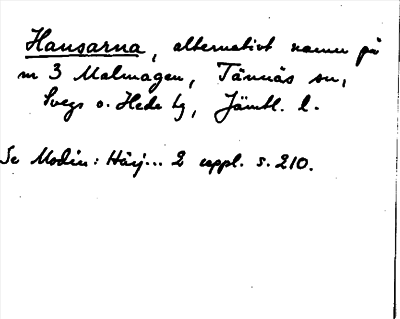 Hansarna, alternativt namn på
nr 3 Malmagen, Tännäs sn,
Svegs o. Hede tg, Jämtl. l.
Se Modin: Härj... 2 uppl. s. 210.